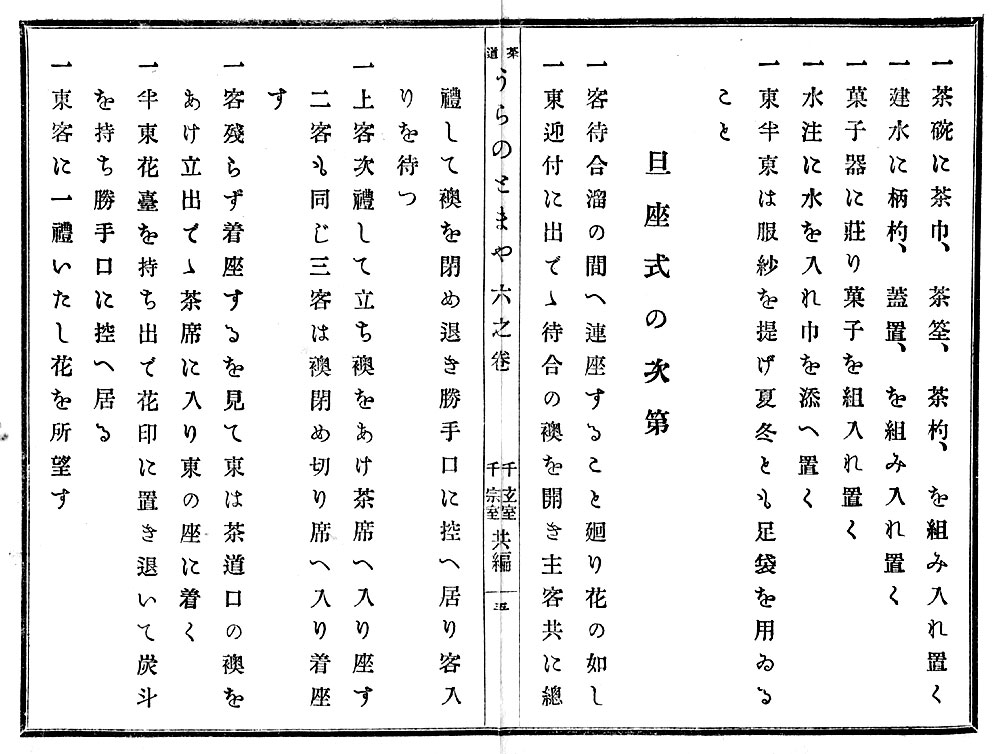 一茶碗に茶巾、茶筌、茶杓、を組み入れ置く
一建水に柄杓、蓋置、を組み入れ置く
一菓子器に莊り菓子を組入れ置く
一水注に水を入れ巾を添へ置く
一東半東は服紗を提げ夏冬とも足袋を用ゐる
こと
且座式の次第
一客待合溜の間へ連座すること廻り花の如し
一東迎付に出でゝ待合の襖を開き主客共に總
茶道
うらのとまや六之卷
千玄室
千宗室
共編
五
禮して襖を閉め退き勝手口に控へ居り客入
りを待つ
一上客次禮して立ち襖をあけ茶席へ入り座す
二客も同じ三客は襖閉め切り席へ入り着座
す
一客殘らず着座するを見て東は茶道口の襖を
あけ立出てゝ茶席に入り東の座に着く
一半東花臺を持ち出で花印に置き退いて炭斗
を持ち勝手口に控へ居る
一東客に一禮いたし花を所望す